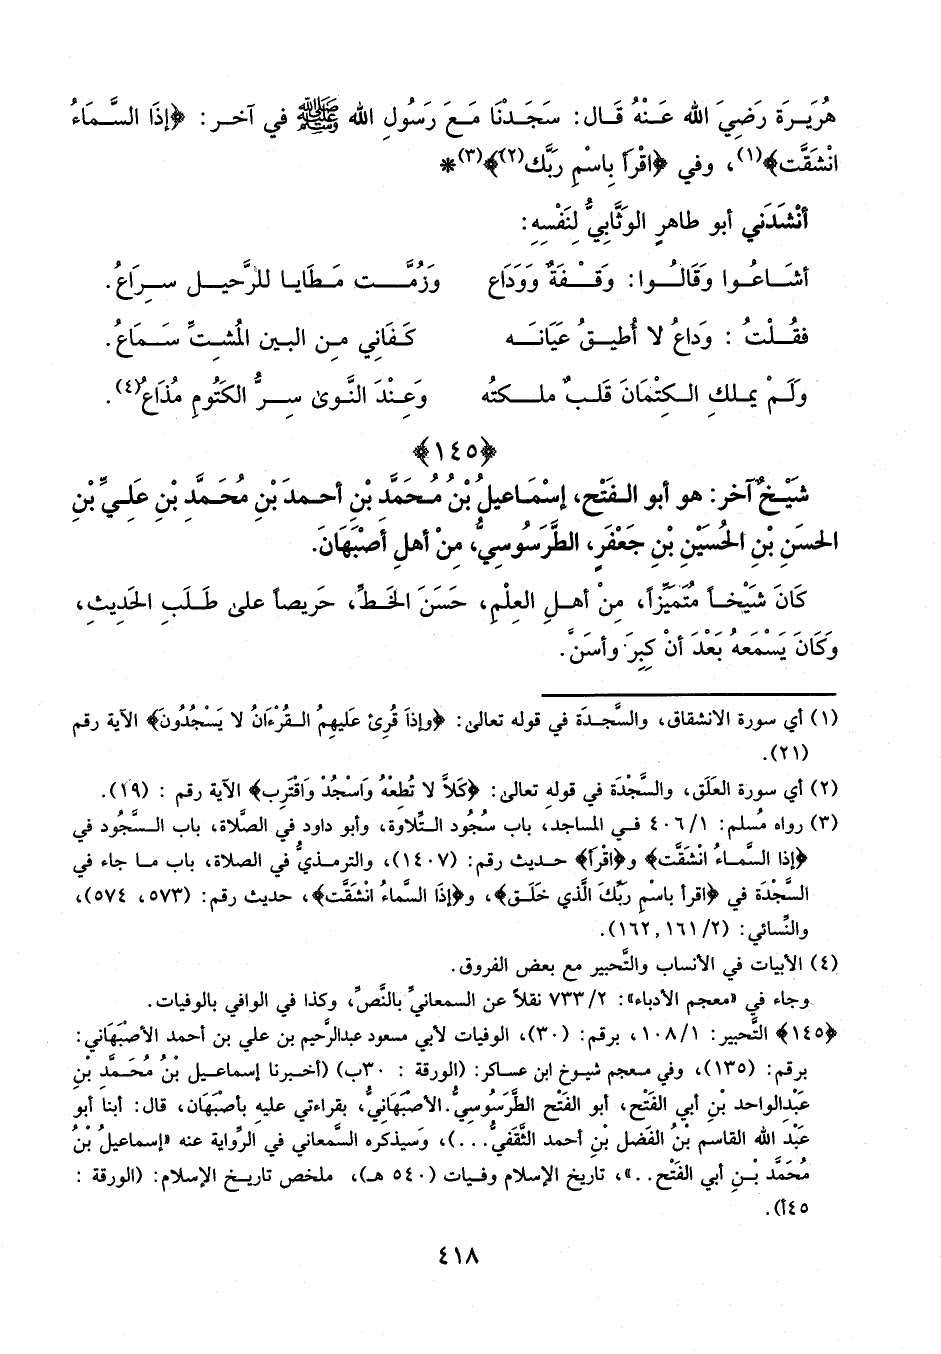 هُرَيرَة رَضِيَ الله عَنْهُ قَال: سَجَدْنَا مَعَ رَسُولِ الله ﷺ في آخر: ﴿إذَا السَّمَاءُ
انْشَقَّت﴾(١)، وفي ﴿اقْرَأ بِاسْمِ رَبِّك(٢)﴾(٣)*
أنْشَدَني أبو طاهرٍ الوَثَّابيُّ لِنَفْسِهِ:
أشَاعُوا وَقَالُوا: وَقْفَةٌ وَوَدَاع وَزُمَّت مَطَايا للرَّحيل سِرَاعُ.
فقُلْتُ: وَدَاعُ لا أُطيقُ عَيَانَه كَفَاني مِن البين المُشتِّ سَمَاعُ.
وَلَمْ يملكِ الكِتْمَانَ قَلبٌ ملكتُه وَعِنْدَ النَّوىٰ سِرُّ الكَتُومِ مُذَاعُ(٤).
﴿١٤٥﴾
شَيْخٌ آخر: هو أبو الفَتْحِ، إسْمَاعيلُ بْنُ مُحَمَّد بْنِ أحمدَ بْنِ مُحَمَّدِ بْنِ عَليِّ بْنِ
الحسَنِ بْنِ الحُسَيْنِ بْنِ جَعْفَرٍ، الطَّرَسُوسيُّ، مِنْ أهلِ أصْبَهَانَ.
كَانَ شَيْخاً مُتَمَيِّزاً، مِنْ أهلِ العِلْمِ، حَسَنَ الخَطِّ، حَريصاً علىٰ طَلَبِ الحَديثِ،
وَكَانَ يَسْمَعهُ بَعْدَ أنْ كَبِرَ وأسَنَّ.
(١) أي سورة الانشقاق، والسَّجدَة في قوله تعالىٰ: ﴿وإذَا قُرِئ عَلَيهِمُ القُرْءَانُ لا يَسْجُدُونَ﴾ الآية رقم
(٢١).
(٢) أي سورة العَلَق، والسَّجْدَة في قولهِ تعالىٰ: ﴿كَلاَّ لا تُطعْهُ وَاسْجُدْ وَاقْتَرِب﴾ الآية رقم : (١٩).
(٣) رواه مُسلم: ٤٠٦/١ في المساجد، باب سُجُود التِّلاوة، وأبو داود في الصَّلاة، باب السُّجُود في
﴿إذا السَّماءُ انْشَقَّت﴾ و﴿اقْرَأ﴾ حديث رقم: (١٤٠٧)، والترمذيُّ في الصلاة، باب ما جاء في
السَّجْدَة في ﴿اقرأ باسْمِ رَبِّكَ الَّذي خَلَق﴾، و﴿إذَا السَّماءُ انْشَقَّت﴾، حديث رقم: (٥٧٣، ٥٧٤)،
والنَّسائي: (١٦٢,١٦١/٢).
(٤) الأبيات في الأنساب والتَّحبير مع بعض الفروق.
وجاء في «معجم الأدباء»: ٧٣٣/٢ نقلاً عن السمعانيِّ بالنَّصِّ، وكذا في الوافي بالوفيات.
﴿١٤٥﴾ التَّحبير: ١٠٨/١، برقم: (٣٠)، الوفيات لأبي مسعود عبدالرَّحيم بن علي بن أحمد الأصْبَهَاني:
برقم: (١٣٥)، وفي معجم شيوخ ابن عساكر: (الورقة : ٣٠ب) (أخبرنا إسماعيل بْنُ مُحَمَّدِ بْنِ
عَبْدِالواحد بْنِ أبي الفَتْحِ، أبو الفَتْح الطَّرَسُوسيُّ.الأصْبَهَانيُّ، بقراءتي عليه بأصْبَهَان، قال: أبنا أبو
عَبْد الله القاسم بْنُ الفَضل بْنِ أحمد الثَّقَفيُّ...)، وَسيذكره السَّمعاني في الرِّواية عنه «إسماعيلُ بْنُ
مُحَمَّد بْنِ أبي الفَتْح..»، تاريخ الإسلام وفيات (٥٤٠ هـ)، ملخص تاريخ الإسلام: (الورقة :
٤٥أ).
٤١٨